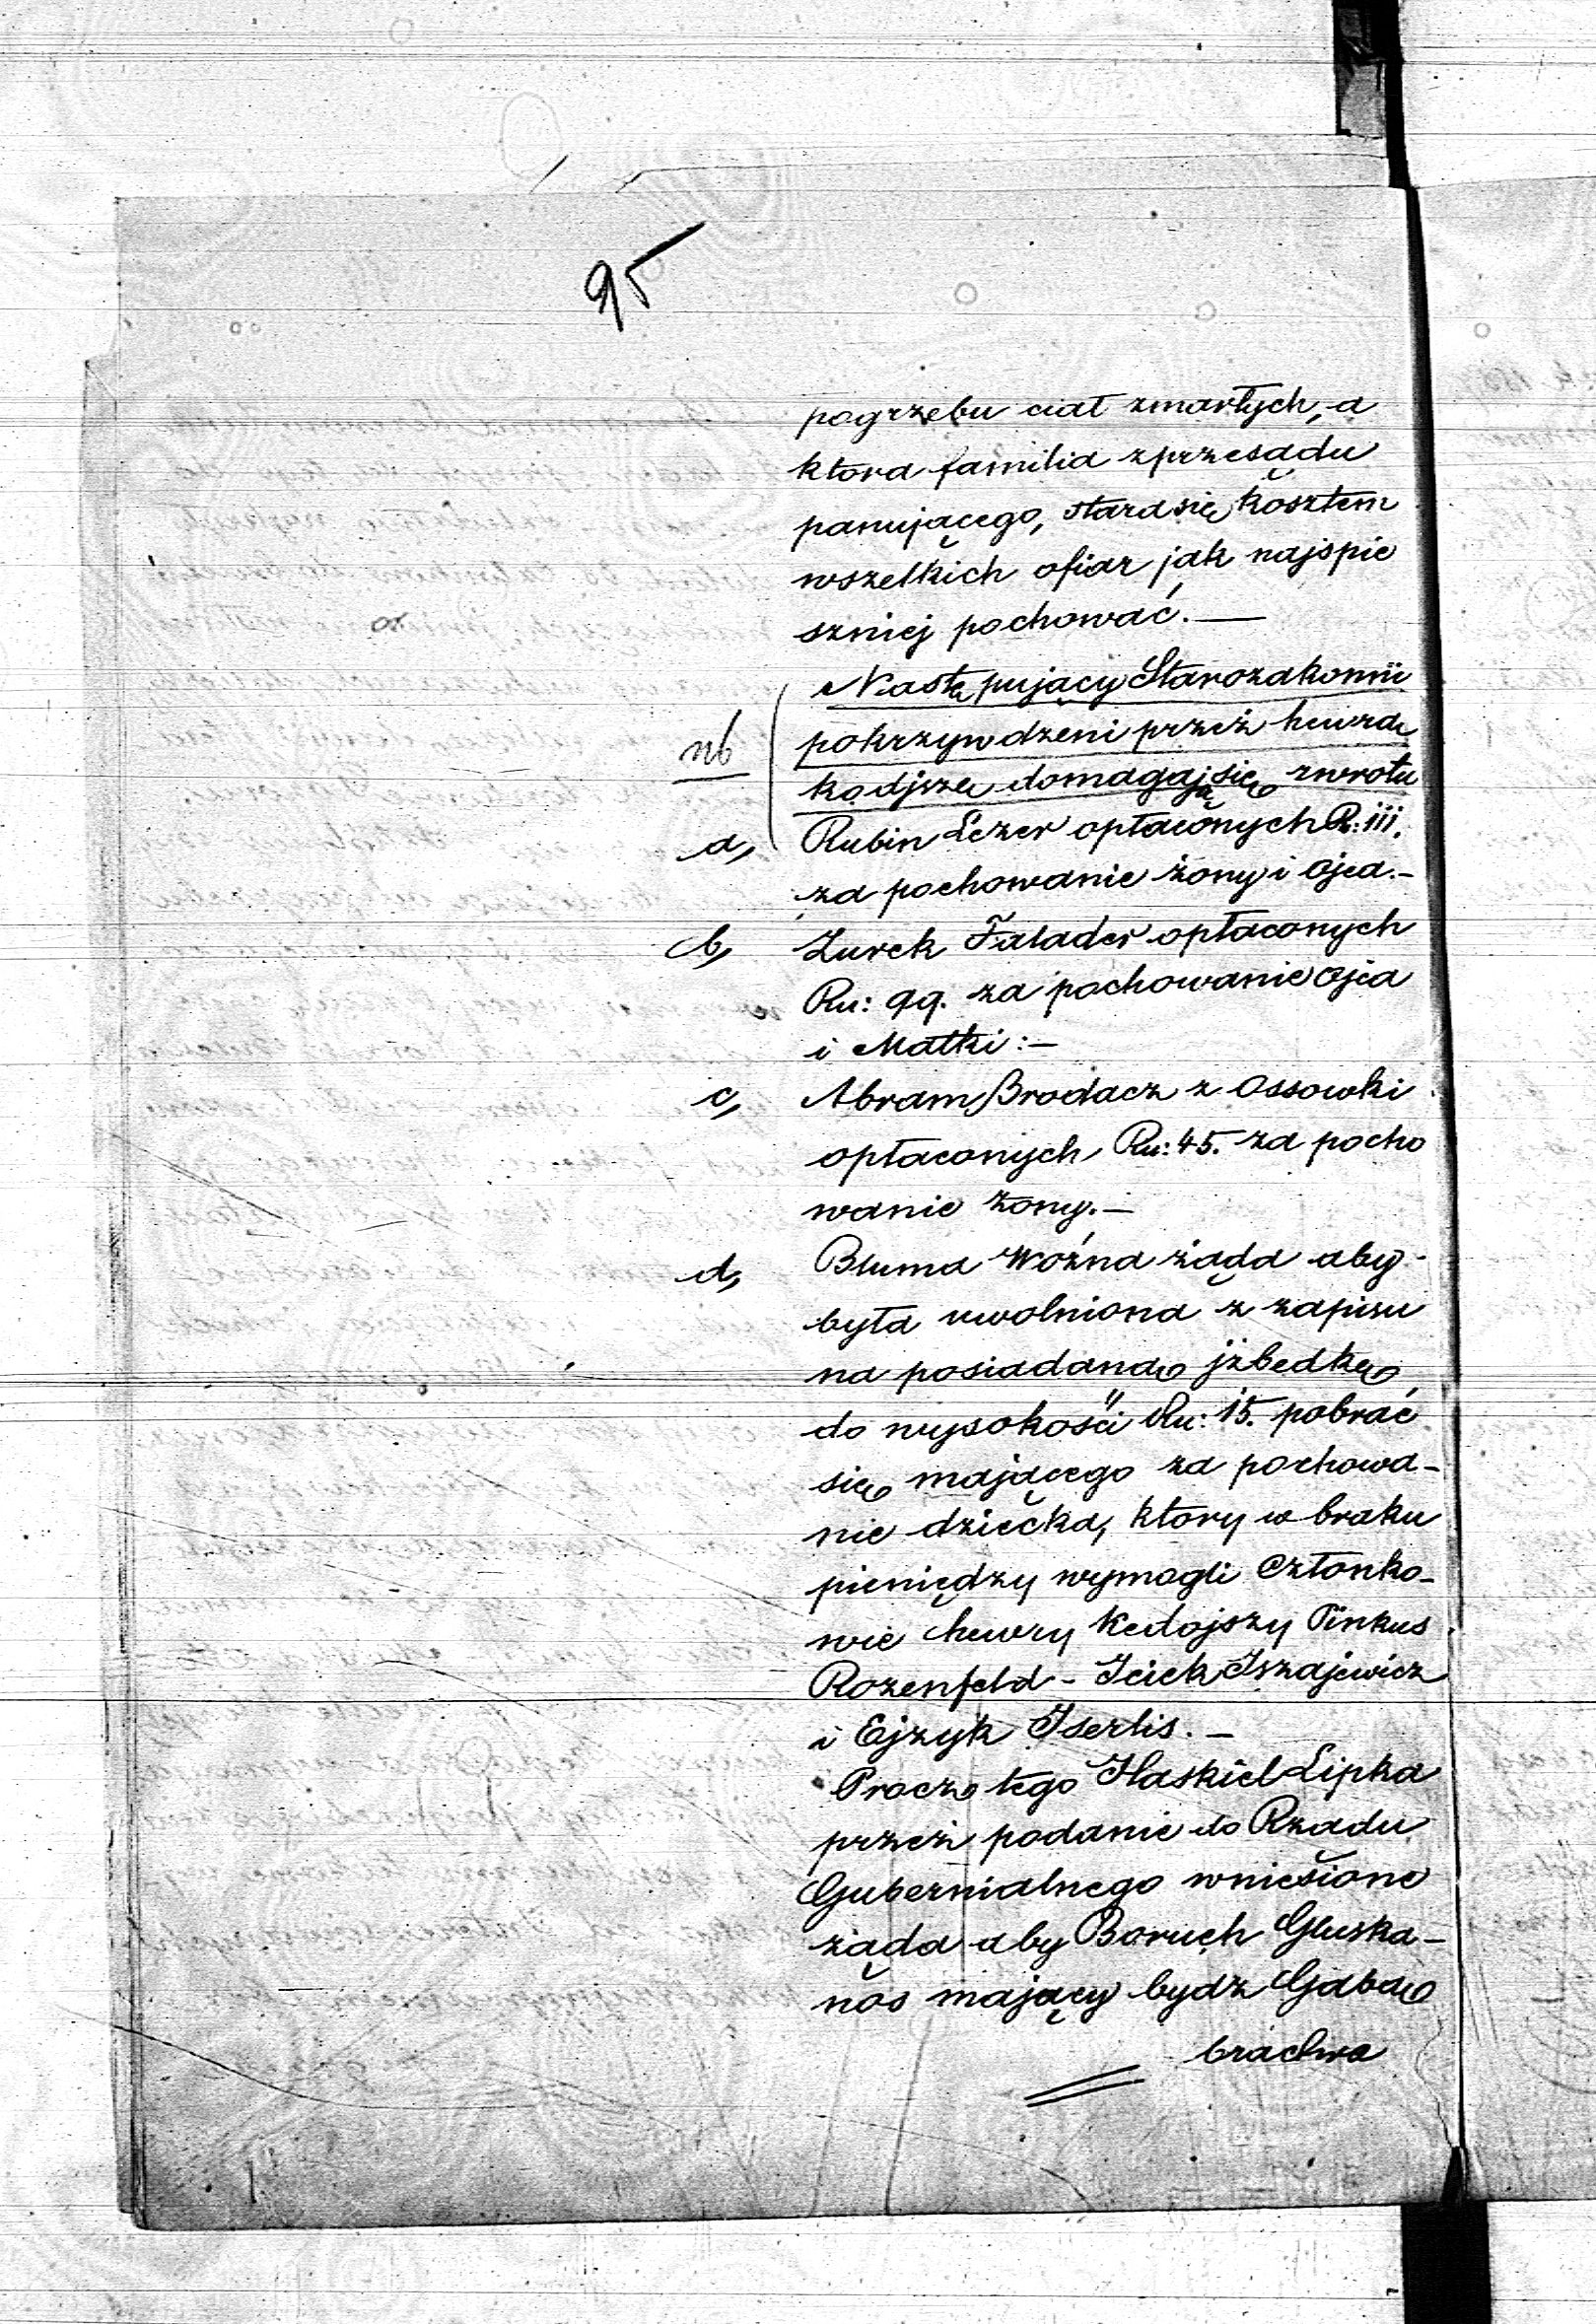 95
pogrzebu ciał zmarłych, a
ktora familia z przesądu
panującego, stara się kosztem
wszelkich ofiar jak najspie
szniej pochować. —
Następujący Starozakonni
nb pokrzywdzeni przez hewrą
kadjsza domagają się zwrotu
a, Rubin Lezer opłaconych R: 111.
za pochowanie żony i Ojca. –
b, Zurek Falader opłaconych
Ru: 99. za pochowanie Ojca
i Matki : –
c, Abram Brodacz z Ossowki
opłaconych Ru: 45. za pocho
wanie żony. –
d, Bluma Woźna żąda aby
była uwolniona z zapisu
na posiadaną jzbedkę
do wysokości Ru: 15. pobrać
się mającego za pochowa-
nie dziecka, ktory w braku
pieniędzy wymogli Członko-
wie hewry Kedojszy Pinkus
Rozenfeld – Icick Iszajewicz
i Ejzyk Iserlis. –
Procz tego Haskiel Lipka
przez podanie do Rządu
Gubernialnego wniesione
żąda aby Boruch Gluska-
nos mający bydz Gabą
bractwa